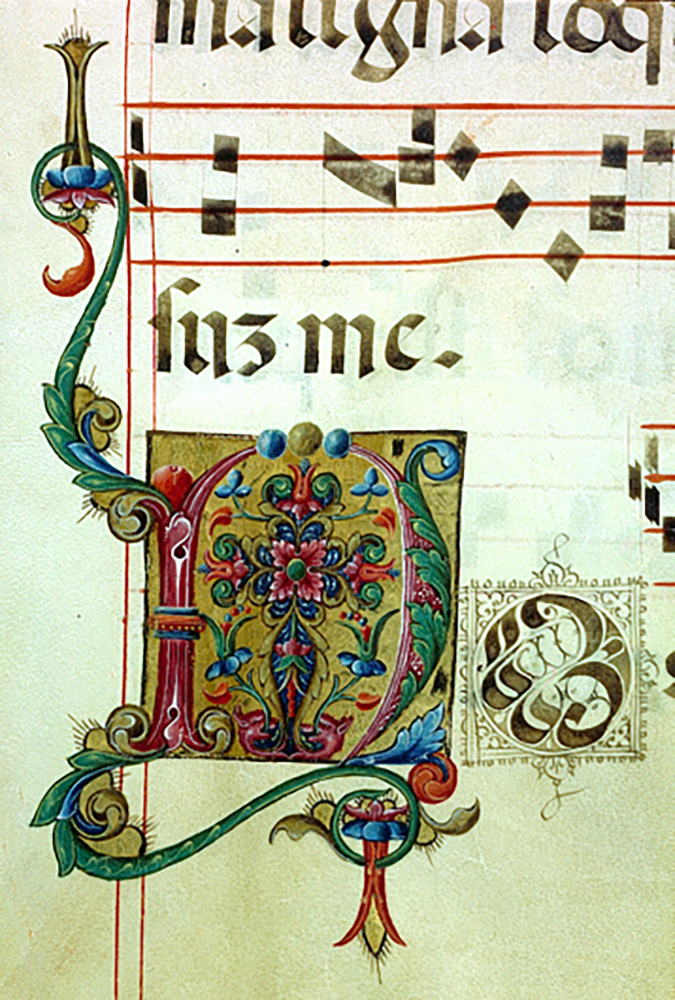 maligna loq
ſuz me.